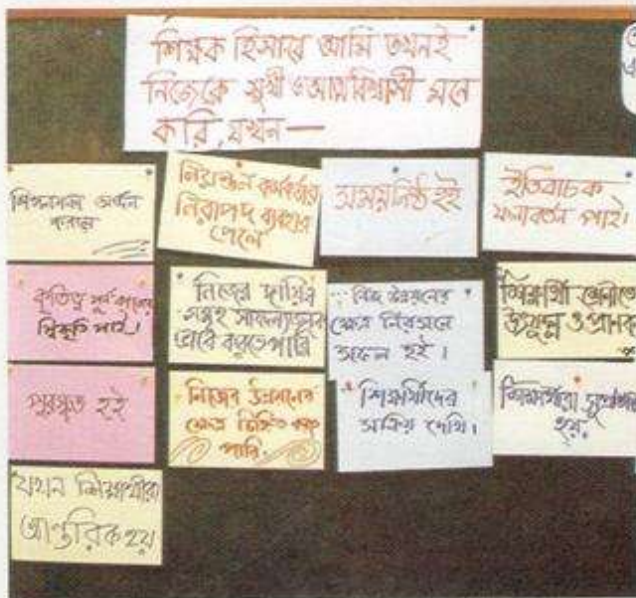 শিক্ষক হিসাবে আমি তখনই
নিজেকে সুখী ও আত্মবিশ্বাসী মনে
করি, যখন—
শিখনফল অর্জন
করাতে
নিয়ন্ত্রন কর্মকর্তার
নিরাপদ ব্যবহার
পেলে
সময়নিষ্ঠ হই
ইতিবাচক
ফলাবর্তন পাই।
কৃতিত্ব পূর্ণ কাজের
স্বিকৃতি পাই।
নিজের দায়িত্ব
সমূহ
ভাবে করতে পারি
নিজ উন্নয়নের
ক্ষেত্র নিরসনে
সফল হই।
শিক্ষার্থী শ্রেণীতে
ও
পুরস্কৃত হই
নিজের উন্নয়নের
ক্ষেত্র চিহ্নিত করতে
পারি
শিক্ষার্থীদের
সক্রিয় দেখি।
শিক্ষার্থীরা
হয়।
যখন শিক্ষার্থীরা
আন্তরিক হয়